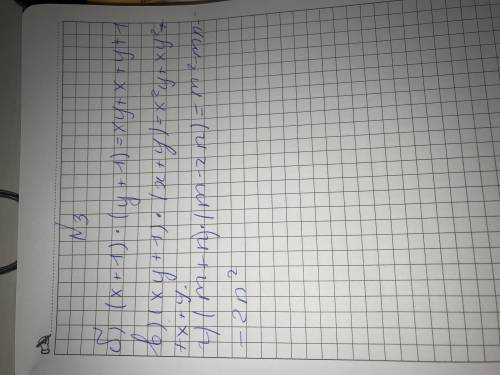 N3
б) (x+1)·(y+1)=xy+x+y+1
в) (xy+1)·(x+y)=x²y+xy²+
+x+y.
г) (m+n)·(m-2n)=m²-mn-
-2n²